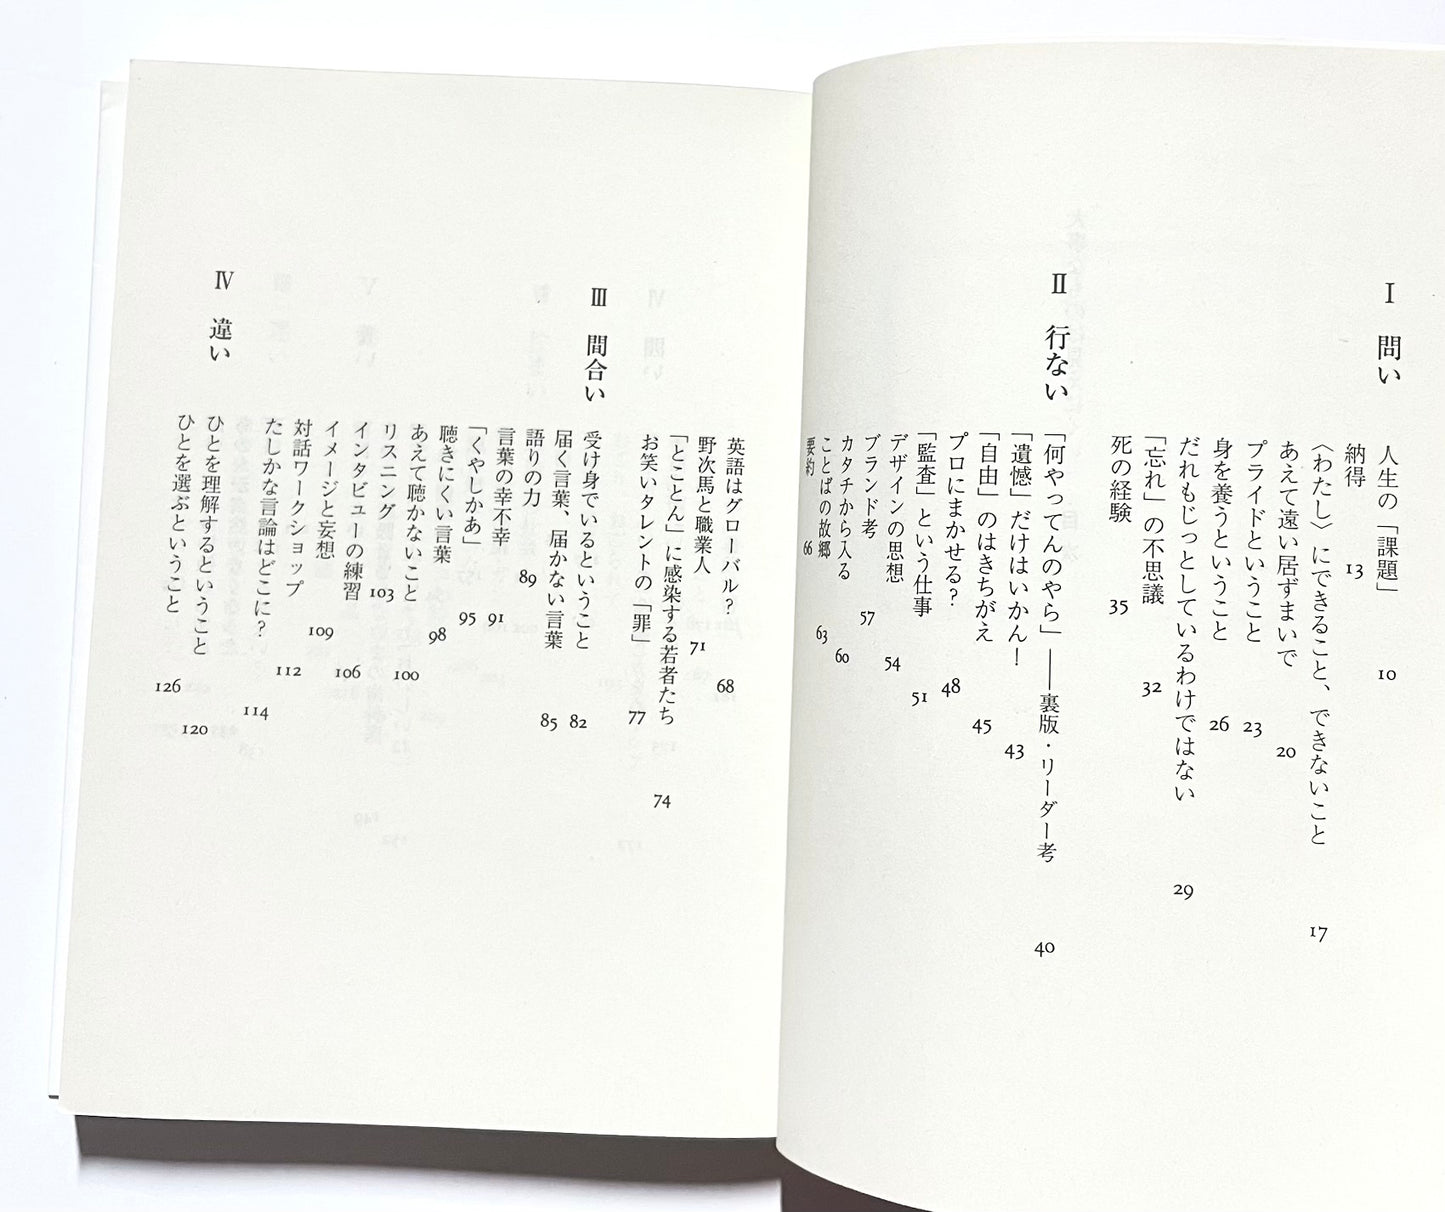 Ⅰ 問い
人生の「課題」 10
納得 13
〈わたし〉にできること、できないこと 17
あえて遠い居ずまいで 20
プライドということ 23
身を養うということ 26
だれもじっとしているわけではない 29
「忘れ」の不思議 32
死の経験 35
Ⅱ 行ない
「何やってんのやら」――裏版・リーダー考 40
「遺憾」だけはいかん！ 43
「自由」のはきちがえ 45
プロにまかせる？ 48
「監査」という仕事 51
デザインの思想 54
ブランド考 57
カタチから入る 60
ことばの故郷 63
要約 66
英語はグローバル？ 68
野次馬と職業人 71
「とことん」に感染する若者たち 74
お笑いタレントの「罪」 77
Ⅲ 間合い
受け身でいるということ 82
届く言葉、届かない言葉 85
語りの力 89
言葉の幸不幸 91
「くやしかあ」 95
聴きにくい言葉 98
あえて聴かないこと 100
リスニング 103
インタビューの練習 106
イメージと妄想 109
対話ワークショップ 112
たしかな言論はどこに？ 114
Ⅳ 違い
ひとを理解するということ 120
ひとを選ぶということ 126